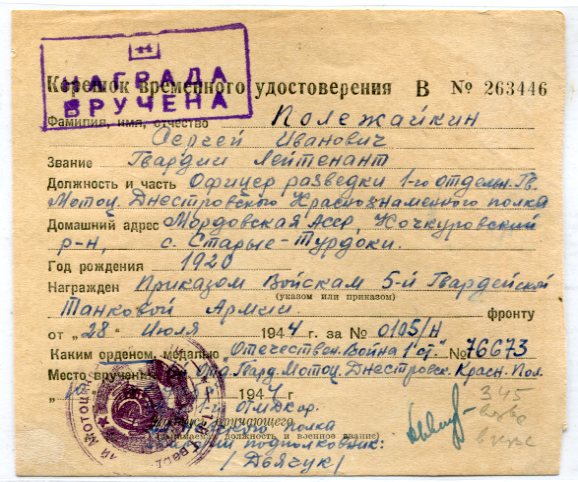 НАГРАДА
ВРУЧЕНА
Корешок временного удостоверения В № 263446
Фамилия, имя, отчество Полежайкин
Сергей Иванович
Звание Гвардии Лейтенант
Должность и часть Офицер разведки 1-го отдельн. Гв.
Мотоц. Днестровского Краснознаменного полка
Домашний адрес Мордовская Асср, Кочкуровский
р-н, с. Старые-Турдаки.
Год рождения 1920
Награжден Приказом Войскам 5-й Гвардейской
(указом или приказом)
Танковой Армии. фронту
от "28" Июля 1944 г. за № 0105/Н
Каким орденом, медалью "Отечествен. Война 1 ст." № 76673
Место вручения Отд. Гвард. Мотоц. Днестровск. Красн. Пол.
194
345
полка
(занимаемая должность и военное звание)
подполковник:
/Дьячук/